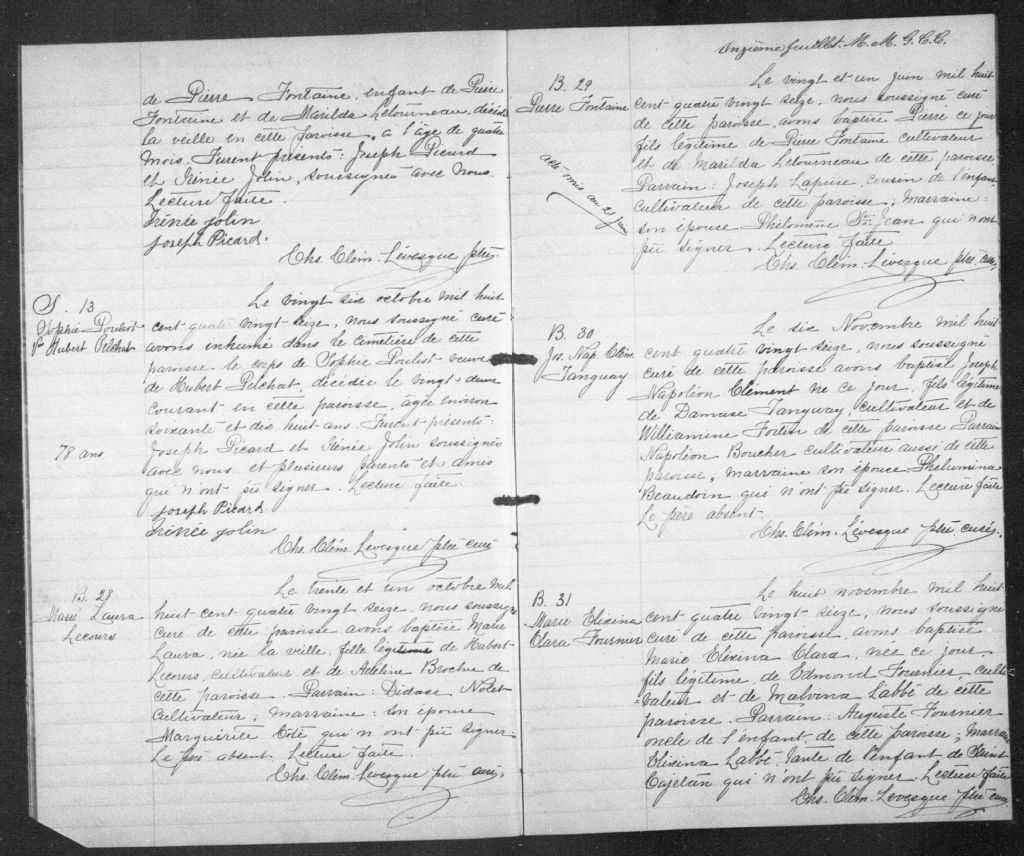 de Pierre Fontaine, enfant de Pierre
Fontaine et de Marilda Letourneau, décédé
la veille en cette paroisse, à l'âge de quatre
mois. Furent présents: Joseph Picard
et Irénée Jolin, soussignés avec nous.
Lecture faite.
Irénée Jolin
Joseph Picard.
Chs. Clém. Lévesque ptre.
S. 13
Sophie Pouliot
Ve Hubert Pelchat
78 ans
Le vingt six octobre mil huit
cent quatre vingt seize, nous soussigné curé
avons inhumé dans le cimetière de cette
paroisse le corps de Sophie Pouliot veuve
de Hubert Pelchat, décédée le vingt-deux
courant en cette paroisse, âgée environ
soixante et dix huit ans. Furent présents:
Joseph Picard et Irénée Jolin soussignés
avec nous et plusieurs parents et amis
qui n'ont pu signer. Lecture faite.
Joseph Picard
Irénée Jolin
Chs. Clém. Lévesque ptre curé
B. 28
Marie Laura
Lecours
Le trente et un octobre mil
huit cent quatre vingt seize, nous soussigné
curé de cette paroisse avons baptisé Marie
Laura, née la veille, fille légitime de Hubert
Lecours, cultivateur et de Adeline Brochu de
cette paroisse. Parrain: Didace Nolet
cultivateur; marraine: son épouse
Marguérite Coté qui n'ont pu signer.
Le père absent. Lecture faite.
Chs. Clém. Lévesque ptre curé.
Onzième feuillet. M. M. G. C. C.
B. 29
Pierre Fontaine
acte omis au 21 juin
Le vingt et un juin mil huit
cent quatre vingt seize, nous soussigné curé
de cette paroisse, avons baptisé Pierre né ce jour
fils légitime de Pierre Fontaine cultivateur
et de Marilda Letourneau de cette paroisse.
Parrain: Joseph Laprise, cousin de l'enfant,
cultivateur de cette paroisse; marraine:
son épouse Philomène St Jean qui n'ont
pu signer. Lecture faite
Chs. Clém. Lévesque ptre. curé.
B. 30
Jos. Nap. Clém.
Tanguay
Le six Novembre mil huit
cent quatre vingt seize, nous soussigné
curé de cette paroisse avons baptisé Joseph
Napoléon Clément né ce jour, fils légitime
de Damase Tanguay, cultivateur et de
Williamine Fortier de cette paroisse Parrain
Napoléon Boucher cultivateur aussi de cette
paroisse, marraine son épouse Philumina
Beaudoin qui n'ont pu signer. Lecture faite
Le père absent.
Chs. Clém. Lévesque ptre curé.
B. 31
Marie Elixina
Clara Fournier
Le huit novembre mil huit
cent quatre vingt seize, nous soussigné
curé de cette paroisse, avons baptisé
Marie Elixina Clara, née ce jour
fils légitime de Edmond Fournier, culti-
=vateur et de Malvina Labbé de cette
paroisse. Parrain: Auguste Fournier
oncle de l'enfant de cette paroisse; marraine
Elixina Labbé, tante de l'enfant de Saint
Cajetan qui n'ont pu signer. Lecture faite
Chs. Clém. Levesque ptre curé